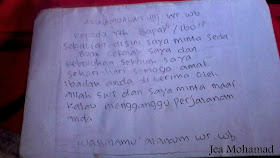 Assalamualaikum wr. wb
kepada yth Bapak²/Ibu²
sebelum disini saya minta seda
kebutuhan sekolah saya
sehari-hari semoga amal
ibadah anda di terima oleh
Allah swt dan saya minta maaf
kalau mengganggu perjalanan
anda
Wassalamu' alaikum wr. wb.
Jea Mohamad